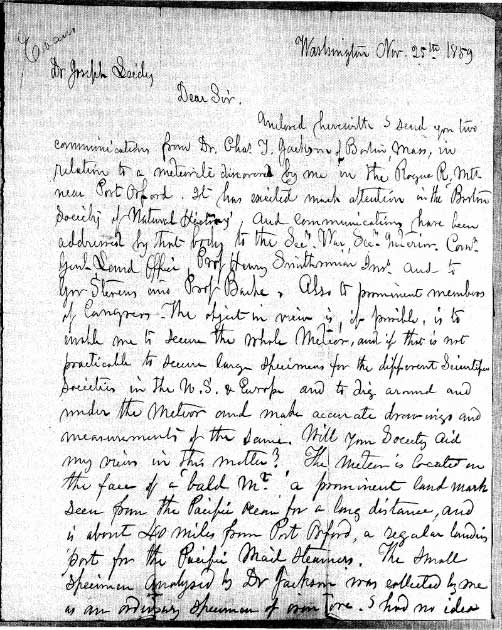 Evans
Washington Nov. 25th 1859
Dr Joseph Leidy
Dear Sir.
Enclosed herewith I send you two
communications from Dr. Chas T. Jackson of Boston, Mass, in
relation to a meteorite discovered by me in the Rogue R. Mts
near Port Orford. It has excited much attention in the Boston
Society of Natural History, And communications have been
addressed by that body to the Secy War, Secy Interior. Comr
Genl Land Office Prof Henry Smithsonian Inst. and to
Gov Stevens and Prof Bache. Also to prominent members
of Congress. The object in view is, if possible, is to
enable me to secure the whole Meteor, and if this is not
practicable to secure large specimens for the different Scientific
Societies in the U.S. & Europe and to dig around and
under the Meteor and make accurate drawings and
measurements of the same. Will your Society aid
my views in this matter? The Meteor is located on
the face of a "bald Mt." a prominent land mark
seen from the Pacific Ocean for a long distance, and
is about 40 miles from Port Orford, a regular landing
port for the Pacific Mail Steamers. The small
Specimen analysed by Dr Jackson was collected by me
as an ordinary specimen of iron ore. I had no idea